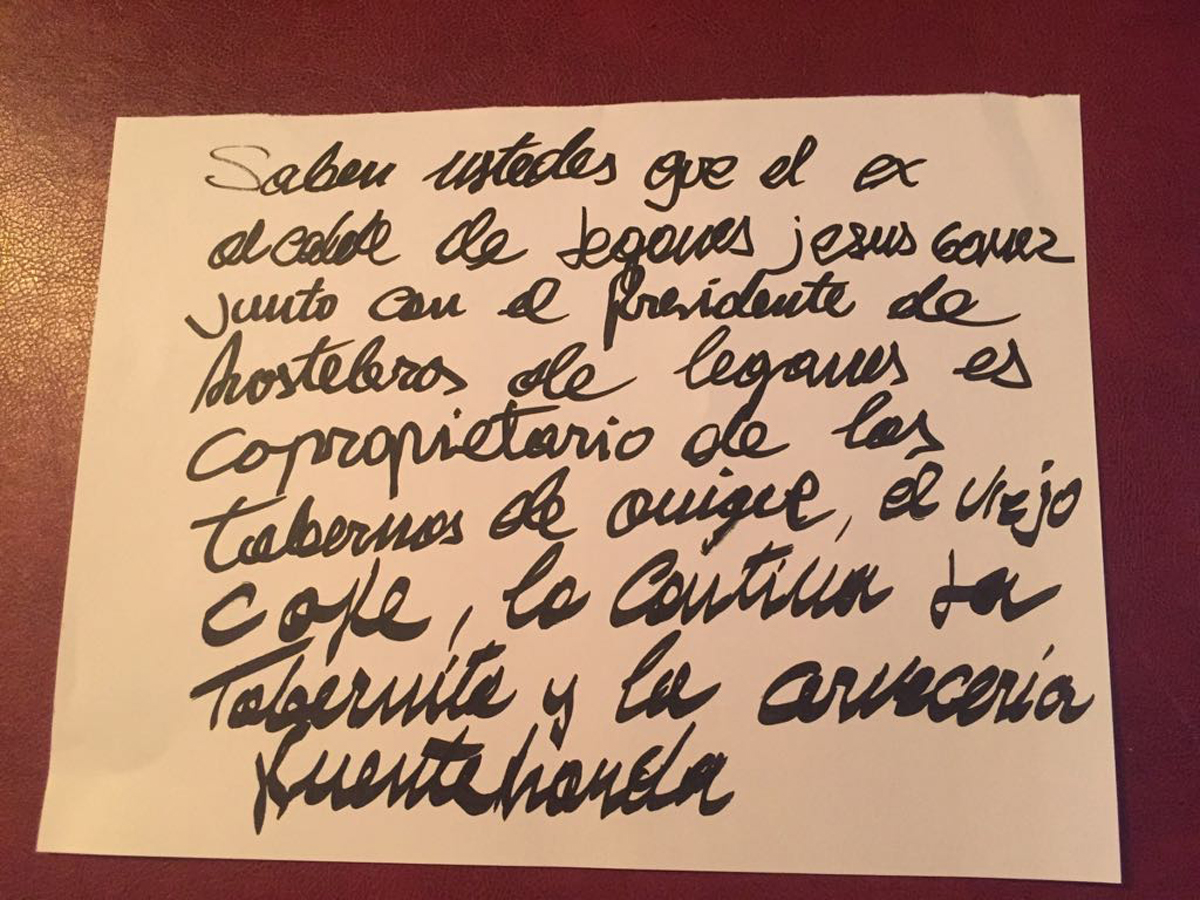 Saben ustedes que el ex
alcalde de Leganes jesus Gomez
junto con el Presidente de
hosteleros de leganes es
copropietario de las
tabernas de quique, el viejo
cafe, la Cantina La
Tabernita y la cervecería
fuentehonda